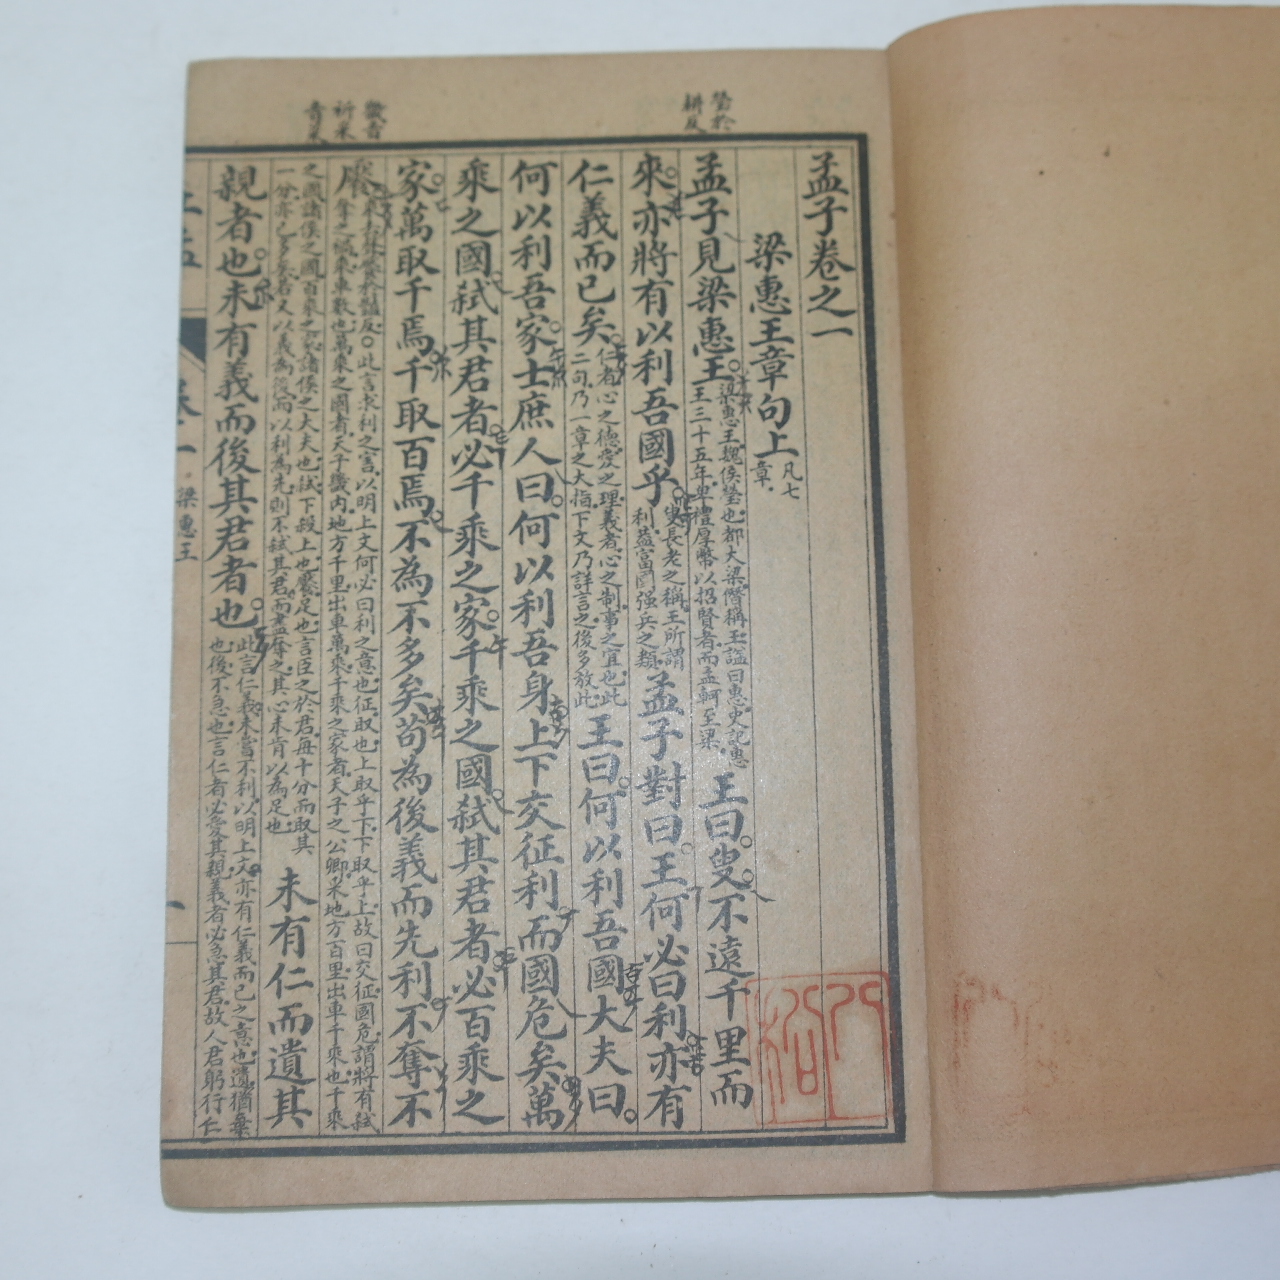 瑩於
耕反
畿音
祈采
音菜
孟子卷之一
梁惠王章句上
凡七
章
孟子見梁惠王
梁惠王魏侯瑩也都大梁僭稱王諡曰惠史記惠
王三十五年卑禮厚幣以招賢者而孟軻至梁
王曰叟不遠千里而
來亦將有以利吾國乎
叟長老之稱王所謂
利蓋富國强兵之類
孟子對曰王何必曰利亦有
仁義而已矣
仁者心之德愛之理義者心之制事之宜也此
二句乃一章之大指下文乃詳言之後多放此
王曰何以利吾國大夫曰
何以利吾家士庶人曰何以利吾身上下交征利而國危矣萬
乘之國弑其君者必千乘之家千乘之國弑其君者必百乘之
家萬取千焉千取百焉不為不多矣苟為後義而先利不奪不
饜
反○此言求利之害以明上文何必曰利之意也征取也上取乎下下取乎上故曰交征國危謂將有弑
奪之禍乘車數也萬乘之國者天子畿內地方千里出車萬乘千乘之家者天子之公卿采地方百里出車千乘也千乘
之國諸侯之國百乘之家諸侯之大夫也弑下殺上也饜足也言臣之於君每十分而取其
一分亦已多矣若又以義為後而以利為先則不弑其君而盡奪之其心未肯以為足也
未有仁而遺其
親者也未有義而後其君者也
此言仁義未嘗不利以明上文亦有仁義而已之意也遺猶棄
也後不急也言仁者必愛其親義者必急其君故人君躬行仁
梁惠王